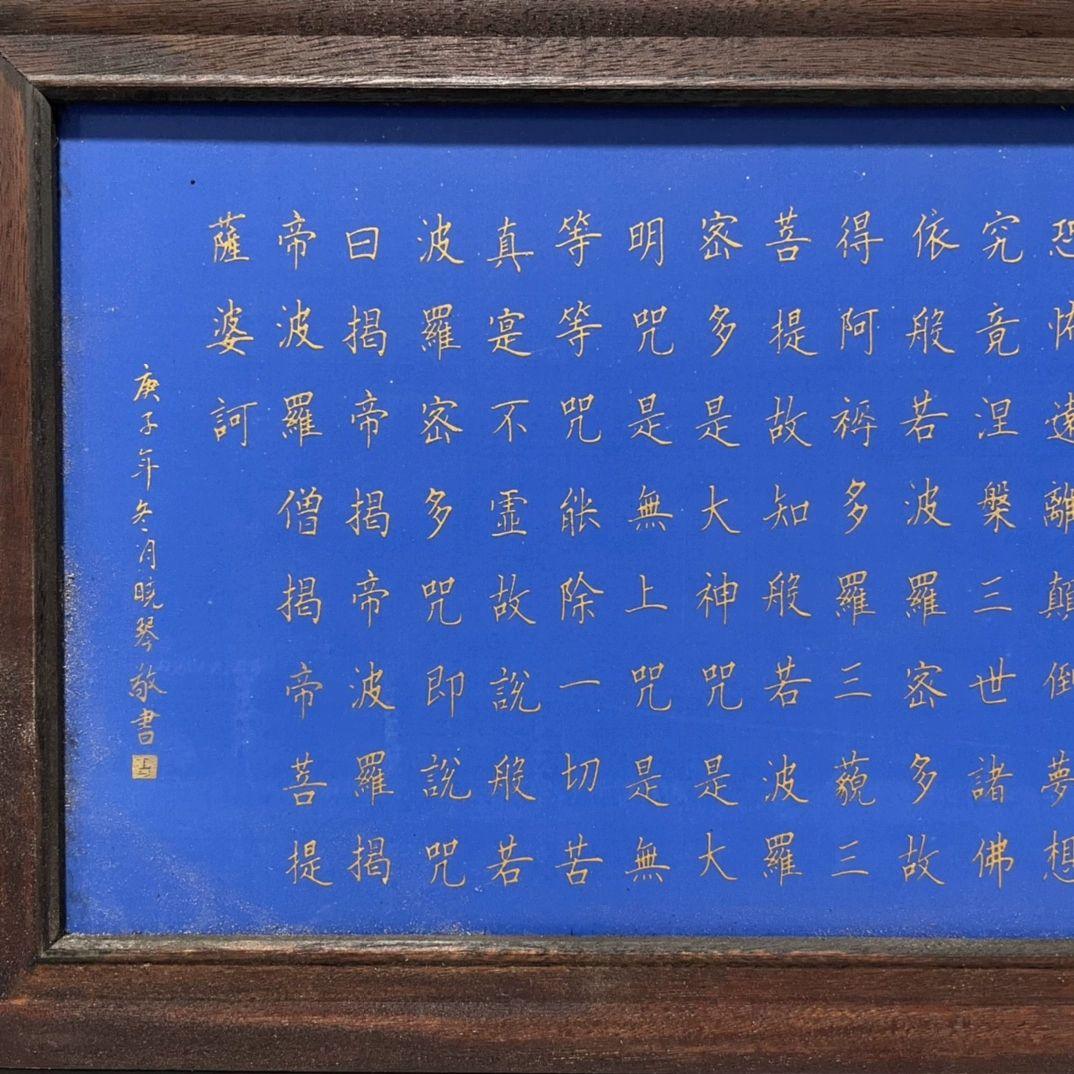 恐怖遠離顛倒夢想
究竟涅槃三世諸佛
依般若波羅密多故
得阿耨多羅三藐三
菩提故知般若波羅
密多是大神咒是大
明咒是無上咒是無
等等咒能除一切苦
真寔不虛故說般若
波羅密多咒即說咒
曰揭帝揭帝波羅揭
帝波羅僧揭帝菩提
薩婆訶
庚子年冬月曉琴敬書